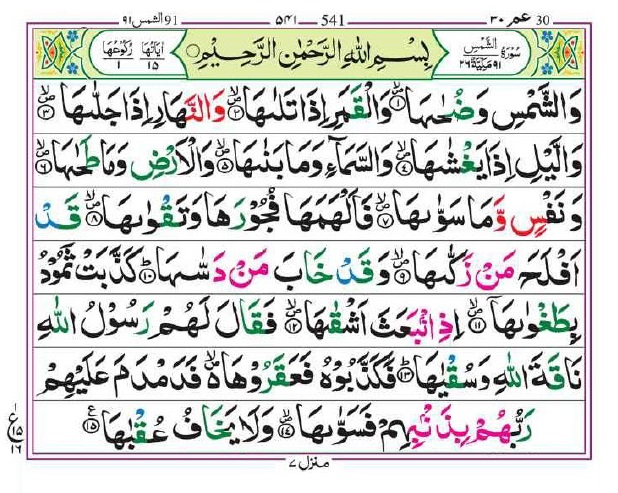 30 عم ٣٠ 541 ٥٤١ 91 الشمس ٩١
سورة الشمس ٩١ مكية ٢٦ بسم الله الرحمن الرحيم اياتها ١٥ ركوعها ١
وَالشَّمْسِ وَضُحٰىهَا ۪ۙ‏﴿۱﴾ وَالْقَمَرِ اِذَا تَلٰىهَا ۪ۙ‏﴿۲﴾ وَالنَّهَارِ اِذَا جَلّٰىهَا ۪ۙ‏﴿۳﴾
وَالَّيْلِ اِذَا يَغْشٰىهَا ۪ۙ‏﴿۴﴾ وَالسَّمَآءِ وَمَا بَنٰىهَا ۪ۙ‏﴿۵﴾ وَالْاَرْضِ وَمَا طَحٰىهَا ۪ۙ‏﴿۶﴾
وَنَفْسٍ وَّمَا سَوّٰىهَا ۪ۙ‏﴿۷﴾ فَاَلْهَمَهَا فُجُوْرَهَا وَتَقْوٰىهَا ۪ۙ‏﴿۸﴾ قَدْ
اَفْلَحَ مَنْ زَكّٰىهَا ۪ۙ‏﴿۹﴾ وَقَدْ خَابَ مَنْ دَسّٰىهَا ؕ‏﴿۱۰﴾ كَذَّبَتْ ثَمُوْدُ
بِطَغْوٰىهَاۤ ۪ۙ‏﴿۱۱﴾ اِذِ انْۢبَعَثَ اَشْقٰىهَا ۪ۙ‏﴿۱۲﴾ فَقَالَ لَهُمْ رَسُوْلُ اللّٰهِ
نَاقَةَ اللّٰهِ وَسُقْيٰهَا ؕ‏﴿۱۳﴾ فَكَذَّبُوْهُ فَعَقَرُوْهَا ۪ۙ فَدَمْدَمَ عَلَيْهِمْ
رَبُّهُمْ بِذَنْۢبِهِمْ فَسَوّٰىهَا ۪ۙ‏﴿۱۴﴾ وَلَا يَخَافُ عُقْبٰهَا ‏﴿۱۵﴾
ع ١٥ ١٦
منزل ٧